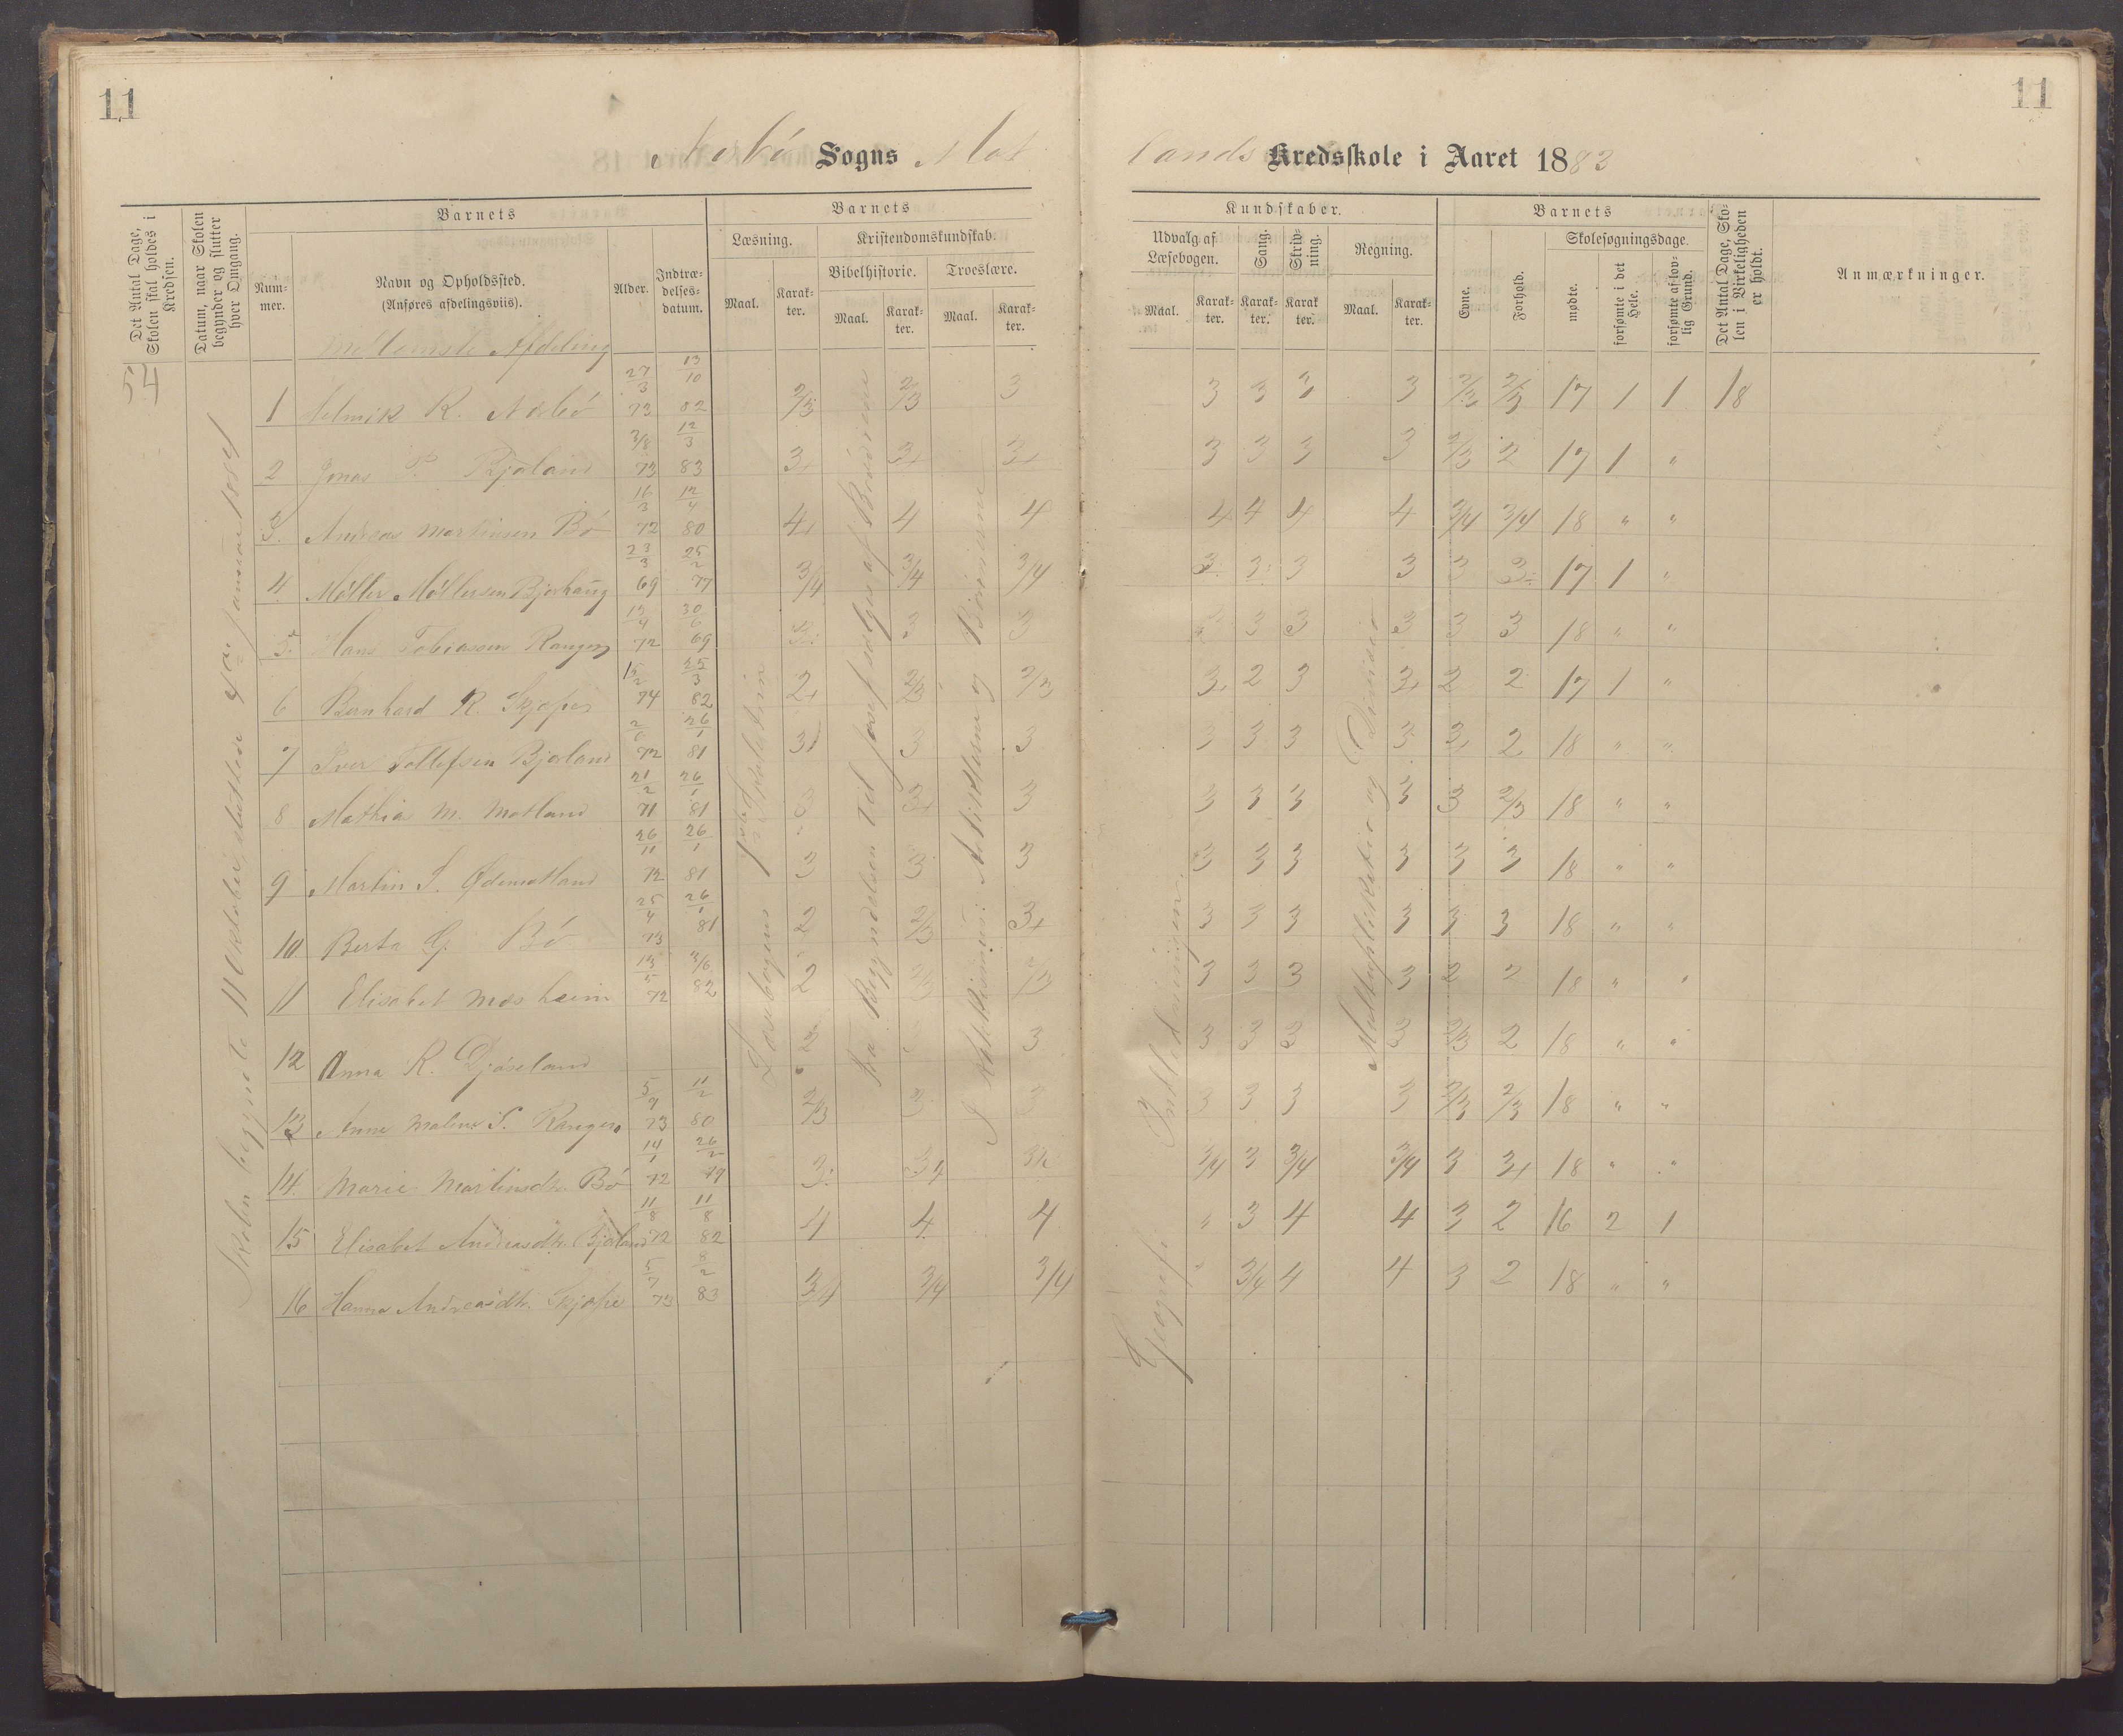 11
11
Sogns Mat
lands Kredsskole i Aaret 1883
Det Antal Dage, Skolen skal holdes i Kredsen.
Datum, naar Skolen begynder og slutter hver Omgang.
Barnets
Num-
mer.
Navn og Opholdssted.
(Anføres afdelingsviis).
Alder.
Indtræ-
delses-
datum.
Barnets
Læsning.
Maal.
Karak-
ter.
Kristendomskundskab.
Bibelhistorie.
Troeslære.
Maal.
Karak-
ter.
Maal.
Karak-
ter.
Kundskaber.
Udvalg af
Læsebogen.
Sang.
Skriv-
ning.
Regning.
Maal.
Karak-
ter.
Karak-
ter.
Karak
ter.
Maal.
Karak-
ter.
Barnets
Evne.
Forhold.
Skolesøgningsdage.
mødte.
forsømte i det
Hele.
forsømte af lov-
lig Grund.
Det Antal Dage, Sko-
len i Virkeligheden
er holdt.
Anmærkninger.
Mellemste Afdeling
54
Skolen begyndte 11 Oktober, sluttede 4de januar 1884
Læsebogens
Fra Begyndelsen til josef sælges af Brødrene
Geografi Indledningen.
Multiplikation og Division
1 R. 27/3 73 13/10 82 2/3 2/3 3 3 3 3 3 2/3 2/3 17 1 1 18
2 Jonas P. Bjorland 3/8 73 12/3 83 3+ 3+ 3+ 3 3 3 3 2/3 2 17 1 "
3. Andreas Martinsen Bó 16/3 72 12/4 80 4+ 4 4 4 4 4 4 3/4 3/4 18 " "
4 Móller Móllersen Bjorhaug 23/3 69 25/2 77 3/4 3/4 3/4 3 3 3 3 3 3 17 1 "
5. Hans Tobiassen Rangen 72 30/6 69 3 3 3 3 3 3 3 3 3 18 " "
6 Bernhard R. Skjæpe 15/2 74 25/3 82 2+ 2/3 2/3 3+ 2 3 3+ 2 2 17 1 "
7 Iver Tollefsen Bjorland 72 26/1 81 3+ 3 3 3 3 3 3 3+ 2 18 " "
8 Mathias M. Motland 21/2 71 26/1 81 3 3+ 3 3 3 3 3 3 2/3 18 " "
9 Martin S. Ødemotland 26/11 72 26/1 81 3 3 3 3 3 3 3 3 3 18 " "
10 Berta G. Bó 25/4 73 26/1 81 2 2/3 3+ 3 3 3 3 3 3 18 " "
11 Elisabet Mosheim 13/5 72 3/6 82 2 2/3 2/3 3 3 3 3 2 2 18 " "
12 Anna R. 3 3 3 3 3 3 3 2 18 " "
13 Anne Malene S. Rangen 5/9 73 11/2 80 2/3 3 3 3 3 3 3 2/3 2/3 18 " "
14. Marie Martinsdtr. Bó 14/1 72 26/2 79 3 3+ 3/4 3 3/4 3/4 3 3+ 18 " "
15 Elisabet Andreasdtr. Bjorland 11/8 72 11/8 82 4 4 4 " 3 4 4 3 2 16 2 1
16 Hanna Andreasdtr. Skjæpe 5/7 73 8/2 83 3/4 3/4 3/4 " 3/4 4 4 3 2 18 " "